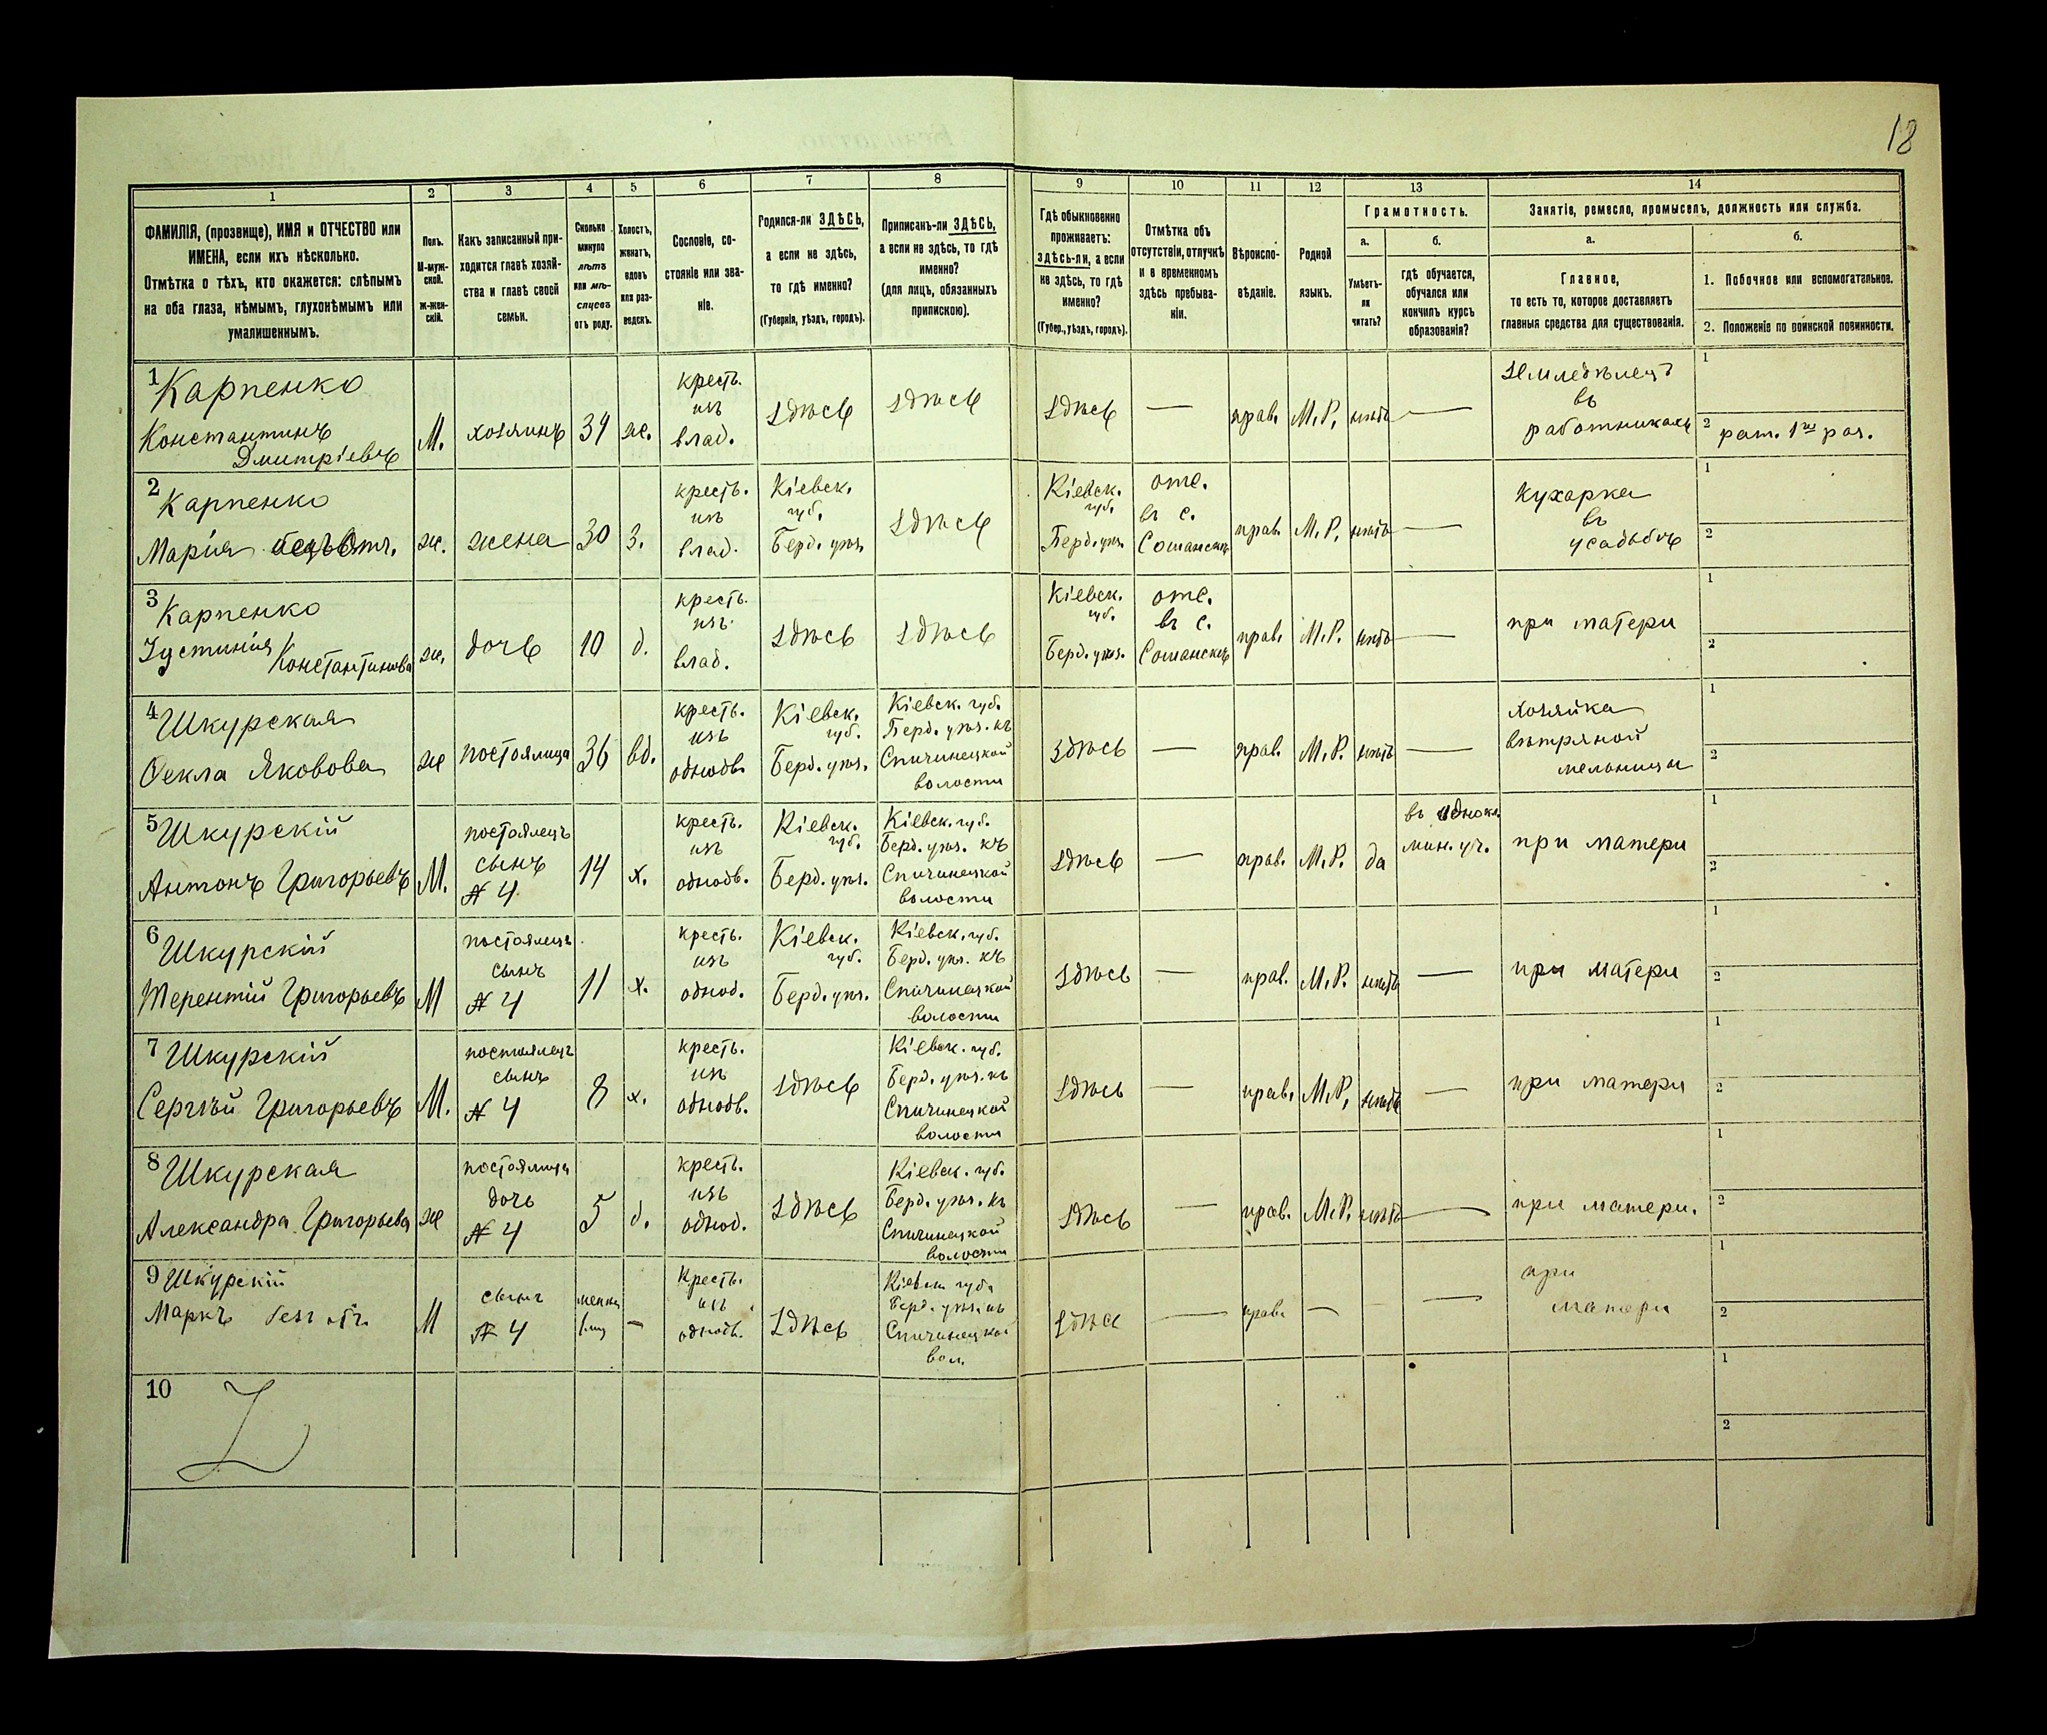 18
1 2 3 4 5 6 7 8 9 10 11 12 13 14
ФАМИЛІЯ, (прозвище), ИМЯ и ОТЧЕСТВО или
ИМЕНА, если ихъ нѣсколько.
Отмѣтка о тѣхъ, кто окажется: слѣпымъ
на оба глаза, нѣмымъ, глухонѣмымъ или
умалишеннымъ.
Полъ.
М-муж-
ской.
ж-жен-
скій.
Какъ записанный при-
ходится главѣ хозяй-
ства и главѣ своей
семьи.
Сколько
минуло
лѣтъ
или мѣ-
сяцевъ
отъ роду.
Холостъ,
женатъ,
вдовъ
или раз-
веденъ.
Сословіе, со-
стояніе или зва-
ніе.
Родился-ли ЗДѢСЬ,
а если не здѣсь,
то гдѣ именно?
(Губернія, уѣздъ, городъ).
Приписанъ-ли ЗДѢСЬ,
а если не здѣсь, то гдѣ
именно?
(для лицъ, обязанныхъ
припискою).
Гдѣ обыкновенно
проживаетъ:
здѣсь-ли, а если
не здѣсь, то гдѣ
именно?
(Губер., уѣздъ, городъ).
Отмѣтка объ
отсутствіи, отлучкѣ
и в временномъ
здѣсь пребыва-
ніи.
Вѣроиспо-
вѣданіе.
Родной
языкъ.
Грамотность.
а.
Умѣетъ-
ли
читать?
б.
гдѣ обучается,
обучался или
кончилъ курсъ
образованія?
Занятіе, ремесло, промыселъ, должность или служба.
а.
Главное,
то есть то, которое доставляетъ
главныя средства для существованія.
б.
1. Побочное или вспомогательное.
2. Положеніе по воинской повинности.
1 Карпенко
Константинъ
Дмитріевъ
М.
хозяинъ
34
же.
крест.
изъ
влад.
здѣсь
здѣсь
здѣсь
—
прав.
М.Р.
нѣтъ
—
Земледѣлецъ
въ
работникахъ
1
2 рат. 1го раз.
2 Карпенко
Марія
же.
жена
30
З.
крест.
изъ
влад.
Кіевск.
губ.
Берд. уѣз.
здѣсь
Кіевск.
губ.
Берд. уѣз.
отс.
въ с.
прав.
М.Р.
нѣтъ
—
кухарка
въ
усадьбѣ
1
2
3 Карпенко
Іустинія
Константинова
же.
дочь
10
д.
крест.
изъ
влад.
здѣсь
здѣсь
Кіевск.
губ.
Берд. уѣз.
отс.
въ с.
прав.
М.Р.
нѣтъ
—
при матери
1
2
4 Шкурская
Ѳекла Яковова
же
постоялица
36
вд.
крест.
изъ
однодв.
Кіевск.
губ.
Берд. уѣз.
Кіевск. губ.
Берд. уѣз. къ
Спичинецкой
волости
здѣсь
—
прав.
М.Р.
нѣтъ
—
хозяйка
вѣтряной
мельницы
1
2
5 Шкурскій
Антонъ Григорьевъ
М.
постоялецъ
сынъ
№ 4
14
х.
крест.
изъ
однодв.
Кіевск.
губ.
Берд. уѣз.
Кіевск. губ.
Берд. уѣз. къ
Спичинецкой
волости
здѣсь
—
прав.
М.Р.
да
въ однокл.
мин. уч.
при матери
1
2
6 Шкурскій
Терентій Григорьевъ
М
постоялецъ
сынъ
№ 4
11
х.
крест.
изъ
однод.
Кіевск.
губ.
Берд. уѣз.
Кіевск. губ.
Берд. уѣз. къ
Спичинецкой
волости
здѣсь
—
прав.
М.Р.
нѣтъ
—
при матери
1
2
7 Шкурскій
Сергѣй Григорьевъ
М.
постоялецъ
сынъ
№ 4
8
х.
крест.
изъ
однодв.
здѣсь
Кіевск. губ.
Берд. уѣз. къ
Спичинецкой
волости
здѣсь
—
прав.
М.Р.
нѣтъ
—
при матери
1
2
8 Шкурская
Александра Григорьева
же
постоялица
дочь
№ 4
5
д.
крест.
изъ
однод.
здѣсь
Кіевск. губ.
Берд. уѣз. къ
Спичинецкой
волости
здѣсь
—
прав.
М.Р.
нѣтъ
—
при матери.
1
2
9 Шкурскій
Маркъ безъ отч.
М
сынъ
№ 4
—
Крест.
изъ
однодв.
здѣсь
Кіевск. губ.
Берд. уѣз. къ
Спичинецкой
вол.
здѣсь
—
прав.
—
—
при
матери
1
2
10
1
2